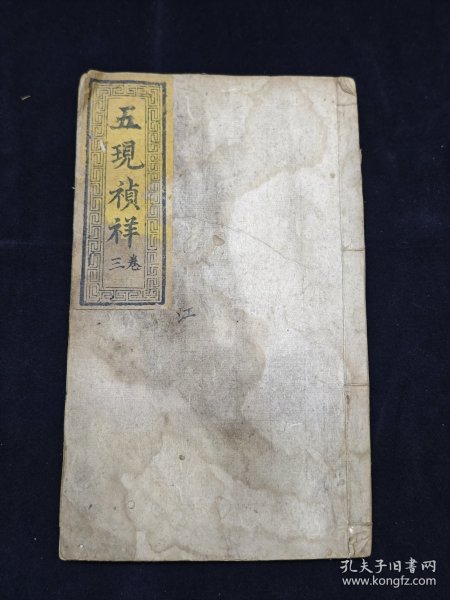 五現禎祥
卷三
江
孔夫子旧书网
www.kongfz.com